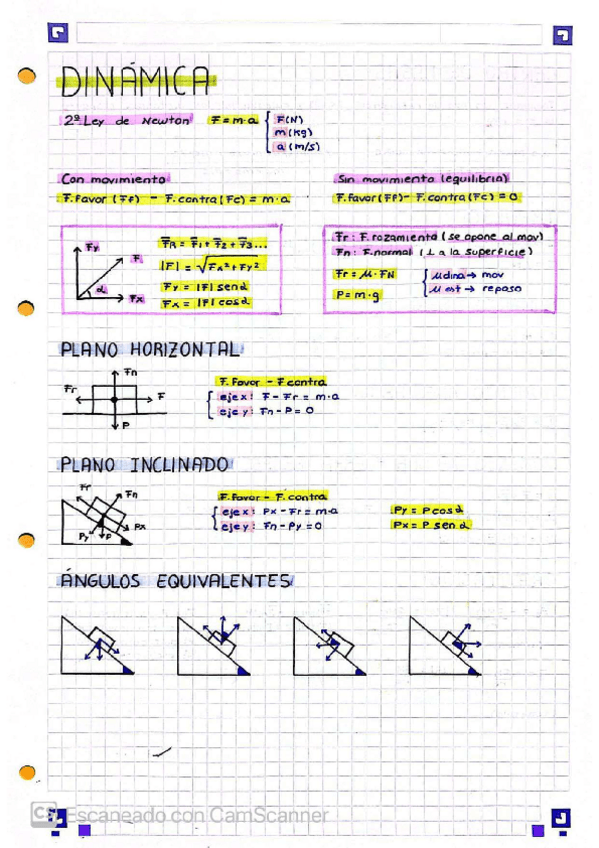 DINÁMICA
2ª Ley de Newton F = m·a { F(N)
m(kg)
a (m/s)
Con movimiento
F. favor (Ff) - F. contra (Fc) = m·a
Sin movimiento (equilibrio)
F. favor (Ff) - F. contra (Fc) = 0
Fy
F
α
Fx
FR = F1 + F2 + F3...
|F| = √Fx² + Fy²
Fy = |F| sen α
Fx = |F| cos α
Fr: F. rozamiento (se opone al mov)
Fn: F. normal (⊥ a la superficie)
Fr = μ · FN { μ dina → mov
μ est → reposo
P = m·g
PLANO HORIZONTAL
Fn
Fr
F
P
F. favor - F contra
eje x: F - Fr = m·a
eje y: Fn - P = 0
PLANO INCLINADO
Fr
Fn
Px
Py
P
F. favor - F. contra
eje x: Px - Fr = m·a
eje y: Fn - Py = 0
Py = P cos α
Px = P sen α
ÁNGULOS EQUIVALENTES
CS Escaneado con CamScanner